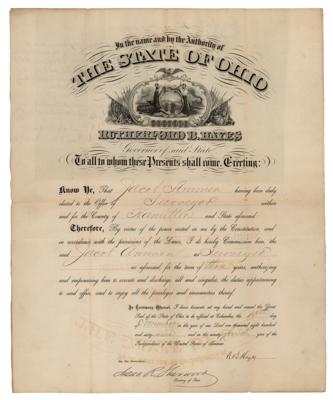 In the name and by the Authority of
THE STATE OF OHIO
RUTHERFORD B. HAYES
Governor of said State
To all to whom these Presents shall come, Greeting:
Know Ye, That Jacob Ammen having been duly
elected to the Office of Surveyor within
and for the County of Hamilton and State aforesaid
Therefore, By virtue of the power vested in me by the Constitution, and
in accordance with the provisions of the Laws, I do hereby Commission him, the
said Jacob Ammen Surveyor
as aforesaid for the term of three years, authorizing
and empowering him to execute and discharge, all and singular, the duties appertaining
to said office, and to enjoy all the privileges and immunities thereof
In Testimony Whereof, I have hereunto set my hand and caused the Great
Seal of the State of Ohio to be affixed at Columbus, the day
in the year of our Lord one thousand eight hundred
and sixty and in the ninety year of the
Independence of the United States of America.
R B Hayes
By the Governor:
Isaac R. Sherwood
Secretary of State